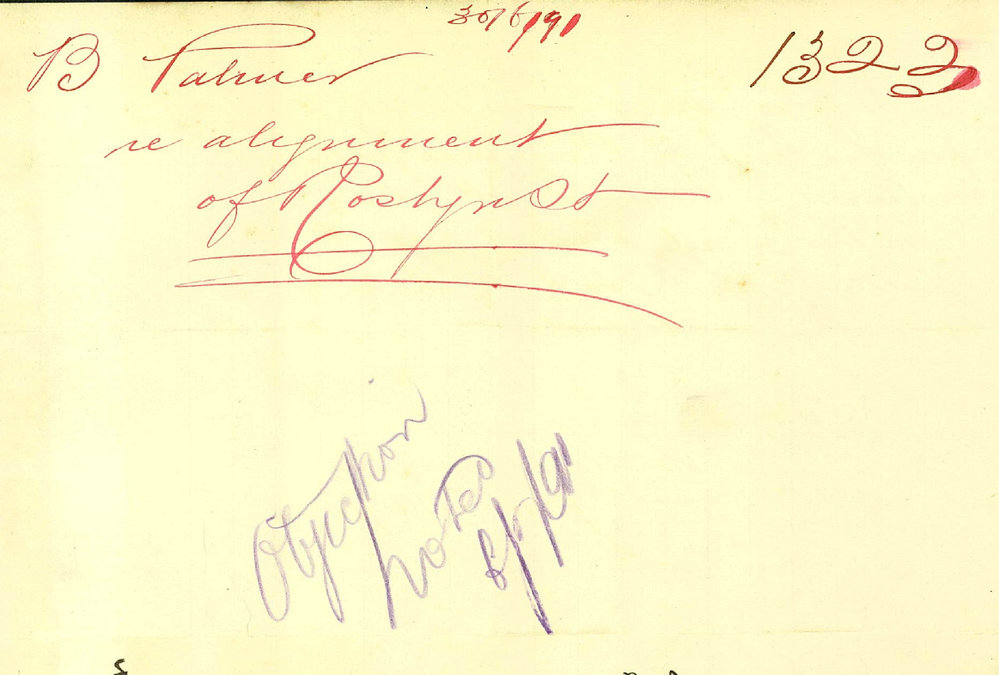 30/6/91
B Palmer
1322
re alignment
of Roslyn St
Objection
noted